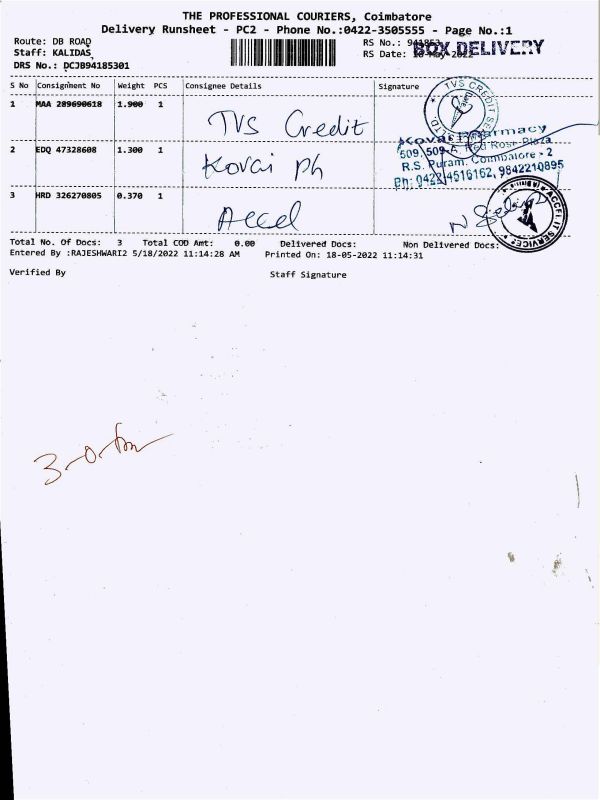 THE PROFESSIONAL COURIERS, Coimbatore
Delivery Runsheet - PC2 - Phone No.:0422-3505555 - Page No.:1
Route: DB ROAD
RS No.:
BOX DELIVERY
Staff: KALIDAS
RS Date: May-2022
DRS No.: DCJB94185301
S No Consignment No Weight PCS Consignee Details Signature
1 MAA 289690618 1.900 1 TVS Credit
TVS CREDIT
2 EDQ 47328608 1.300 1 Kovai Ph
Kovai Pharmacy
509, 509-A, Red Rose Plaza
R.S. Puram, Coimbatore - 2
Ph: 0422-4516162, 9842210895
3 HRD 326270805 0.370 1 Accel
ACCEL IT SERVICES
Total No. Of Docs: 3 Total COD Amt: 0.00 Delivered Docs: Non Delivered Docs:
Entered By :RAJESHWARI2 5/18/2022 11:14:28 AM Printed On: 18-05-2022 11:14:31
Verified By Staff Signature